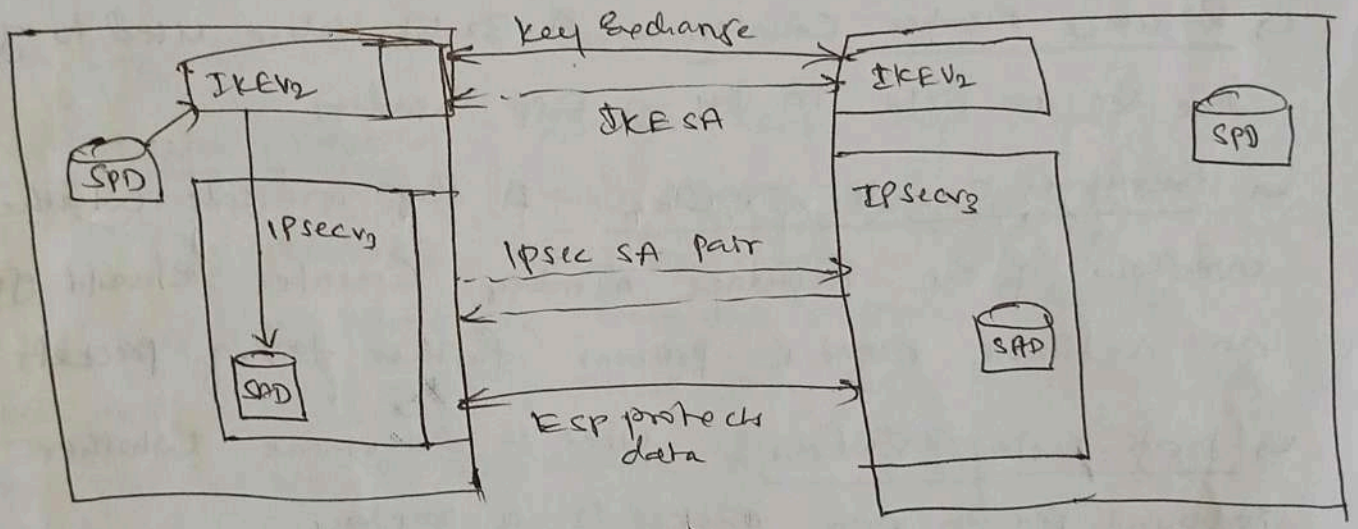 Key Exchange
IKEV2
IKEV2
IKE SA
SPD
SPD
IPsecv3
IPsecv3
Ipsec SA Pair
SAD
SAD
ESP protects
data